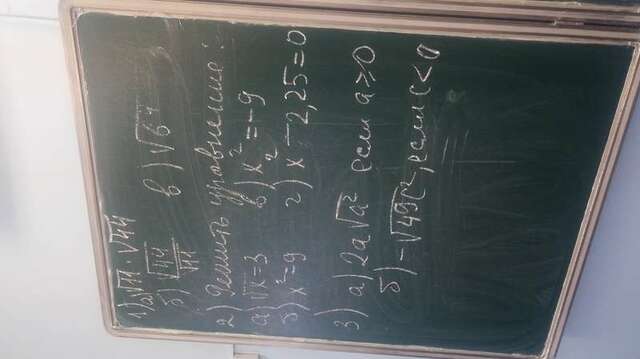 1) а) √11 · √44
б) √44/√11 в) √6⁴
2) Решить уравнение:
а) √x = 3 в) x² = -9
б) x² = 9 г) x² - 2,25 = 0
3) а) 2a√a² если a ≥ 0
б) -√49c², если c < 0